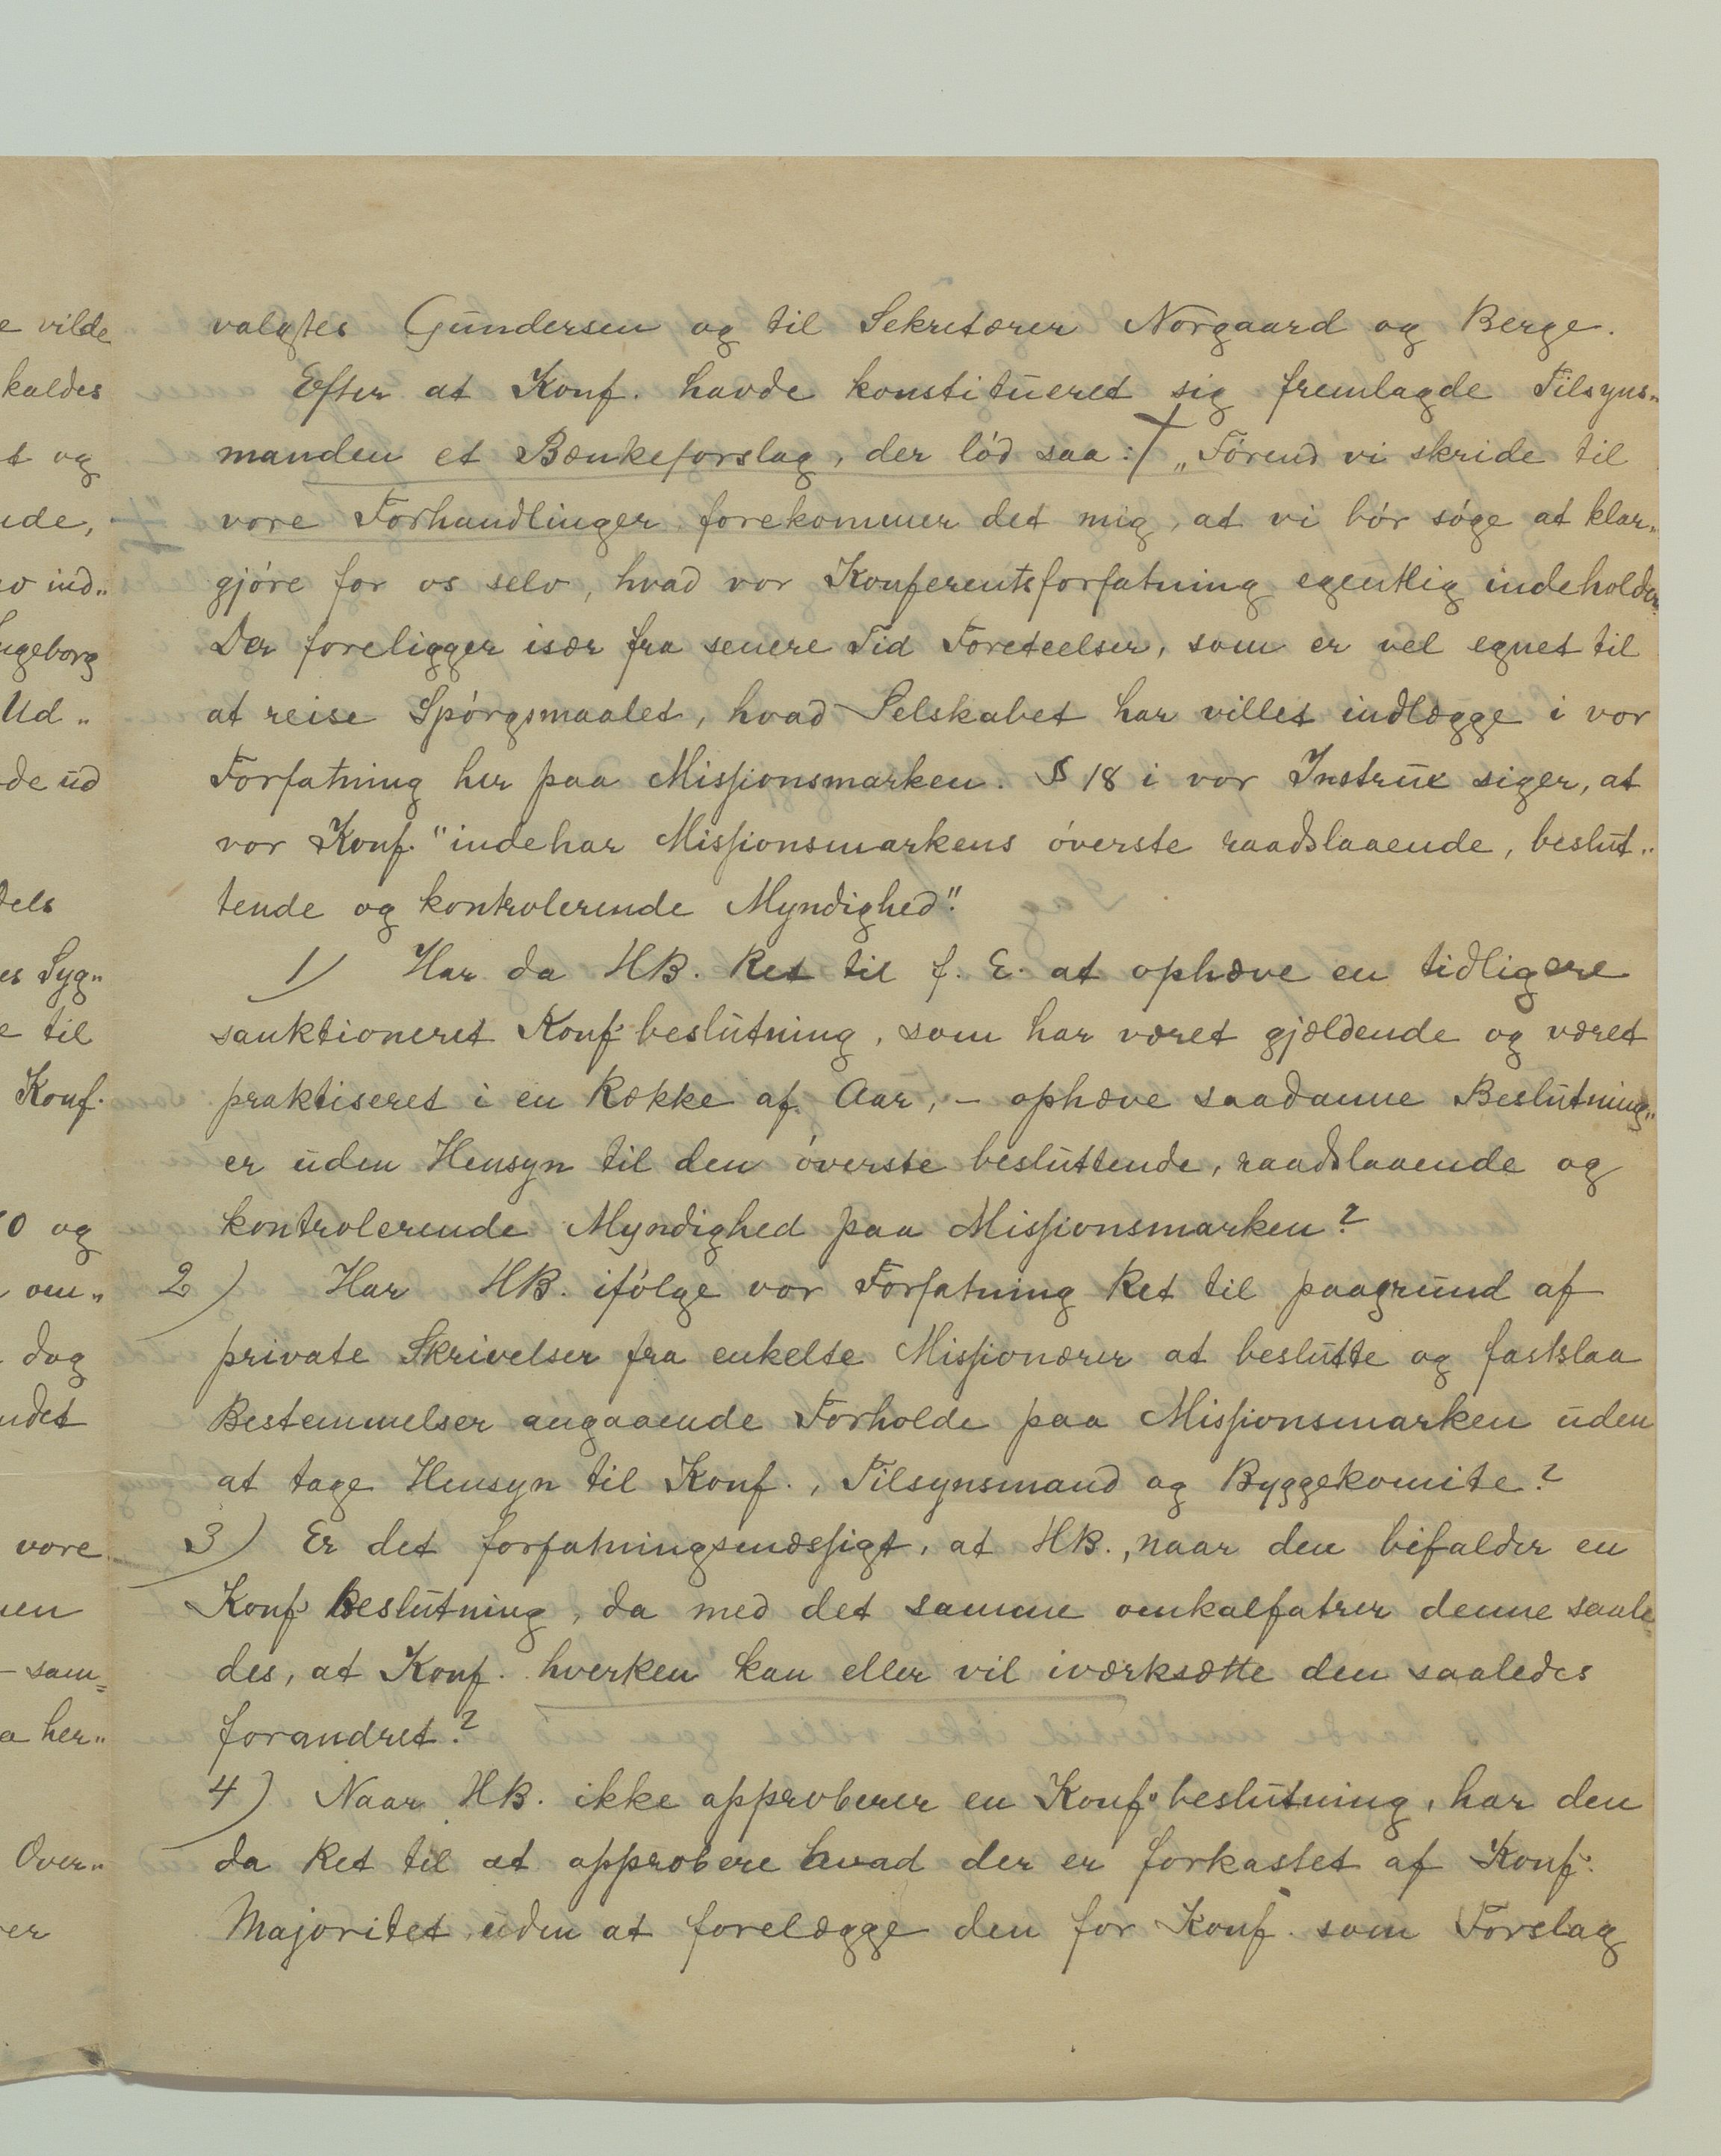 e vilde
kaldes
t og
nde,
v ind„
ngeborg
Ud„
de ud
dels
es Syg„
e til
Konf.
0 og
om„
dog
ndet
vore
en
sam=
a her„
Over„
er
valgtes Gundersen og til Sekretærer Norgaard og Berge.
Efter at Konf. havde konstitueret sig fremlagde Tilsyns„
manden et Bænkeforslag, der lød saa: „Førend vi skride til
vore Forhandlinger forekommer det mig, at vi bør søge at klar„
gjøre for os selv, hvad vor Konferentsforfatning egentlig indeholder.
Der foreligger især fra senere Tid Foreteelser, som er vel egnet til
at reise Spørgsmaalet, hvad Selskabet har villet indlægge i vor
Forfatning her paa Missionsmarken. § 18 i vor Instrux siger, at
vor Konf. "indehar Missionsmarkens øverste raadslaaende, beslut„
tende og kontrolerende Myndighed".
1) Har da HB. Ret til f. E. at ophæve en tidligere
sanktioneret Konf. beslutning, som har været gjældende og været
praktiseret i en Række af Aar, – ophæve saadanne Beslutning„
er uden Hensyn til den øverste besluttende, raadslaaende og
kontrolerende Myndighed paa Missionsmarken?
2) Har HB. ifølge vor Forfatning Ret til paagrund af
private Skrivelser fra enkelte Missionærer at beslutte og fastslaa
Bestemmelser angaaende Forholde paa Missionsmarken uden
at tage Hensyn til Konf., Tilsynsmand og Byggekomite?
3) Er det forfatningsmæssigt, at HB., naar den bifalder en
Konf. Beslutning, da med det samme omkalfatrer denne saale„
des, at Konf. hverken kan eller vil iværksætte den saaledes
forandret?
4) Naar HB. ikke approberer en Konf. beslutning, har den
da Ret til at approbere hvad der er forkastet af Konf.
Majoritet uden at forelægge den for Konf. som Forslag